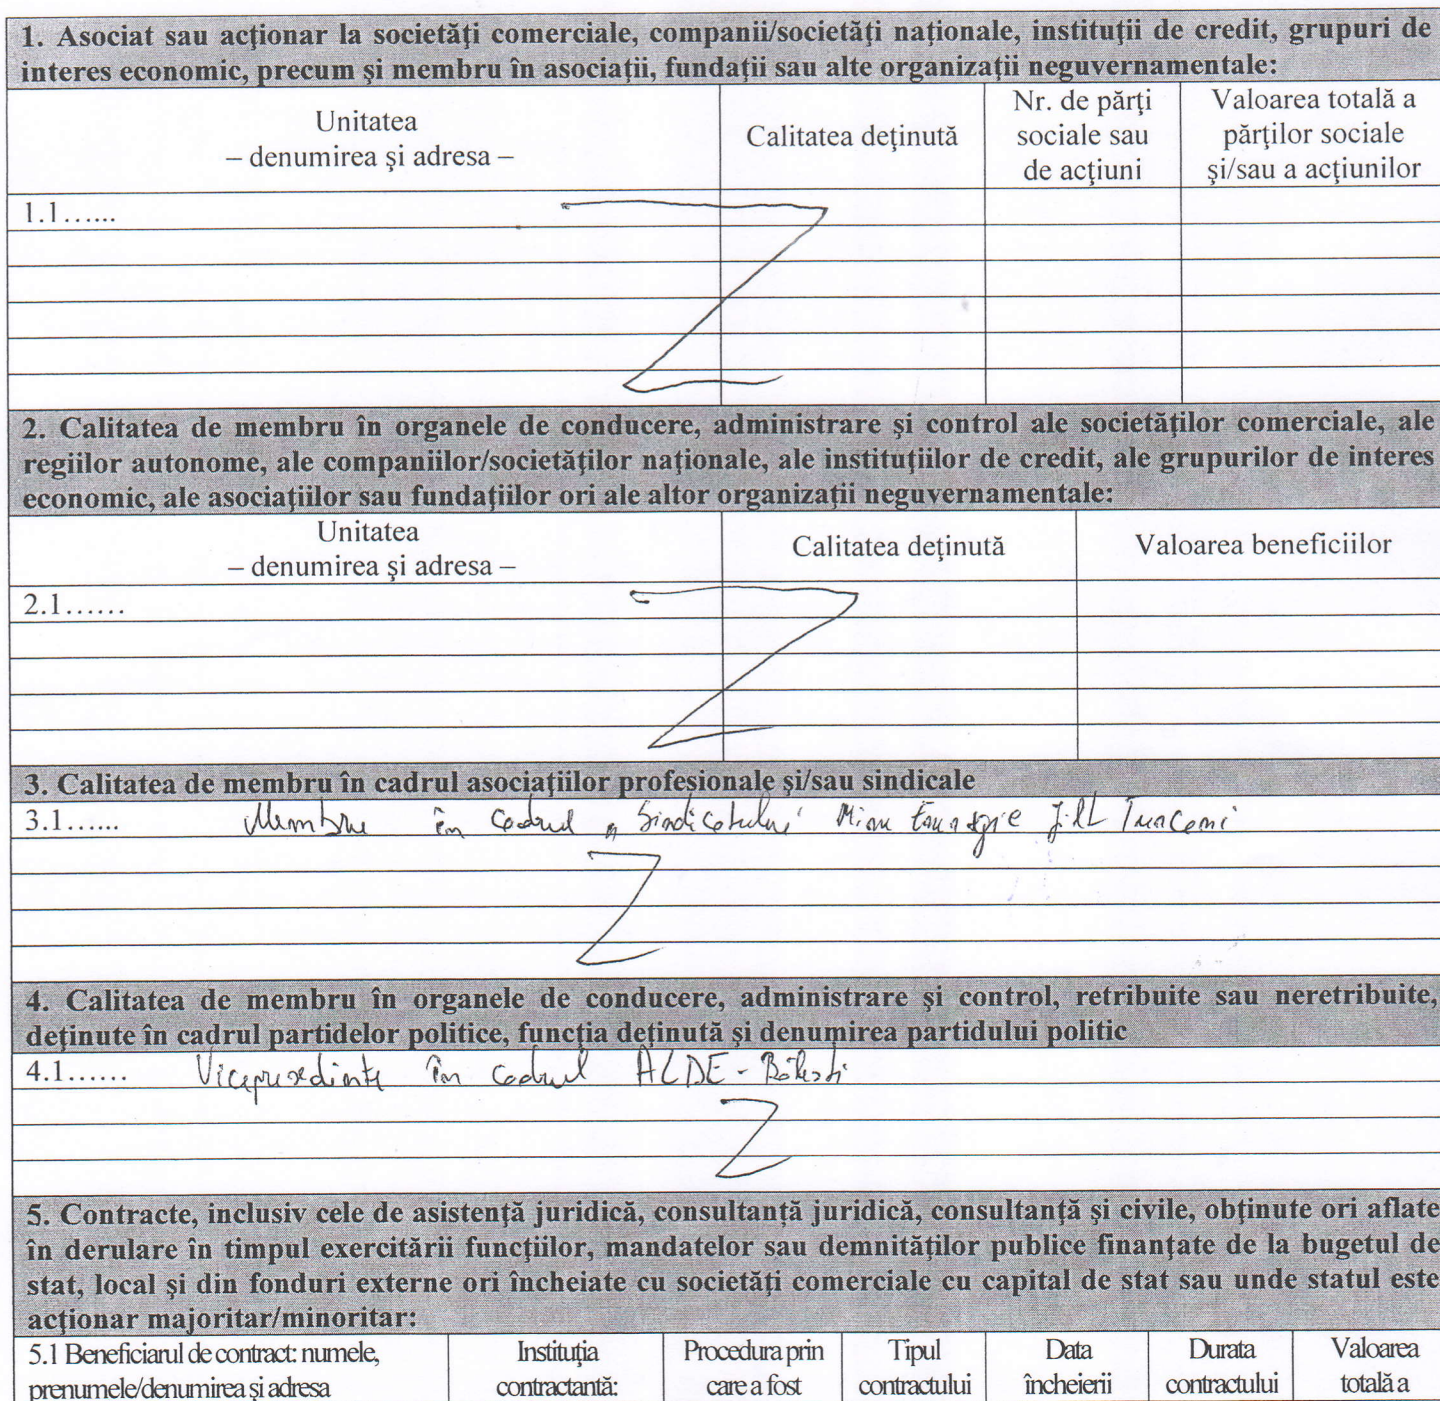 1. Asociat sau acţionar la societăţi comerciale, companii/societăţi naţionale, instituţii de credit, grupuri de
interes economic, precum şi membru în asociaţii, fundaţii sau alte organizaţii neguvernamentale:
Unitatea
– denumirea şi adresa –
Calitatea deţinută
Nr. de părţi
sociale sau
de acţiuni
Valoarea totală a
părţilor sociale
şi/sau a acţiunilor
1.1......
2. Calitatea de membru în organele de conducere, administrare şi control ale societăţilor comerciale, ale
regiilor autonome, ale companiilor/societăţilor naţionale, ale instituţiilor de credit, ale grupurilor de interes
economic, ale asociaţiilor sau fundaţiilor ori ale altor organizaţii neguvernamentale:
Unitatea
– denumirea şi adresa –
Calitatea deţinută
Valoarea beneficiilor
2.1......
3. Calitatea de membru în cadrul asociaţiilor profesionale şi/sau sindicale
3.1...... Membru în cadrul Sindicatului
4. Calitatea de membru în organele de conducere, administrare şi control, retribuite sau neretribuite,
deţinute în cadrul partidelor politice, funcţia deţinută şi denumirea partidului politic
4.1...... Vicepreşedinte în cadrul ALDE -
5. Contracte, inclusiv cele de asistenţă juridică, consultanţă juridică, consultanţă şi civile, obţinute ori aflate
în derulare în timpul exercitării funcţiilor, mandatelor sau demnităţilor publice finanţate de la bugetul de
stat, local şi din fonduri externe ori încheiate cu societăţi comerciale cu capital de stat sau unde statul este
acţionar majoritar/minoritar:
5.1 Beneficiarul de contract: numele,
prenumele/denumirea şi adresa
Instituţia
contractantă:
Procedura prin
care a fost
Tipul
contractului
Data
încheierii
Durata
contractului
Valoarea
totală a